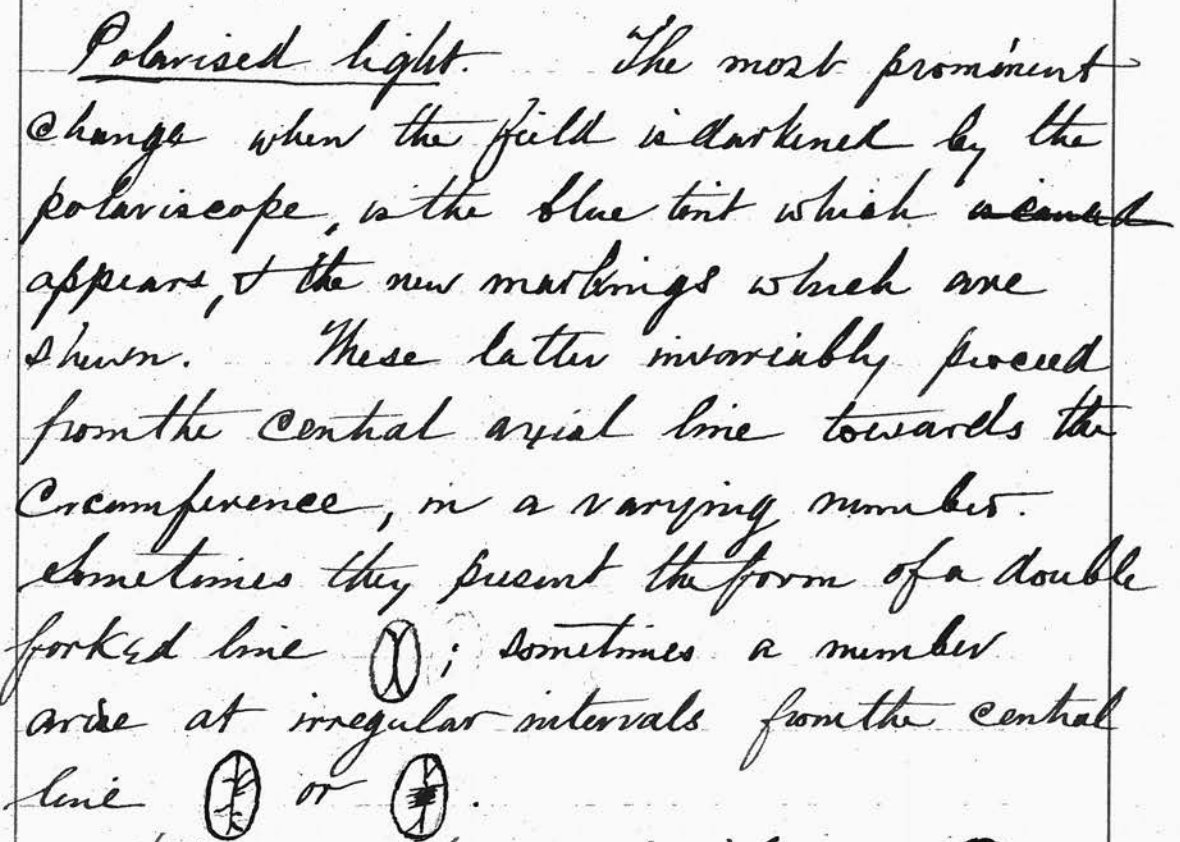 Polarised light. The most prominent
change when the field is darkened by the
polariscope, is the blue tint which is caused
appears, & the new markings which are
shewn. These latter invariably proceed
from the central axial line towards the
circumference, in a varying number.
Sometimes they present the form of a double
forked line ; sometimes a number
arise at irregular intervals from the central
line or .